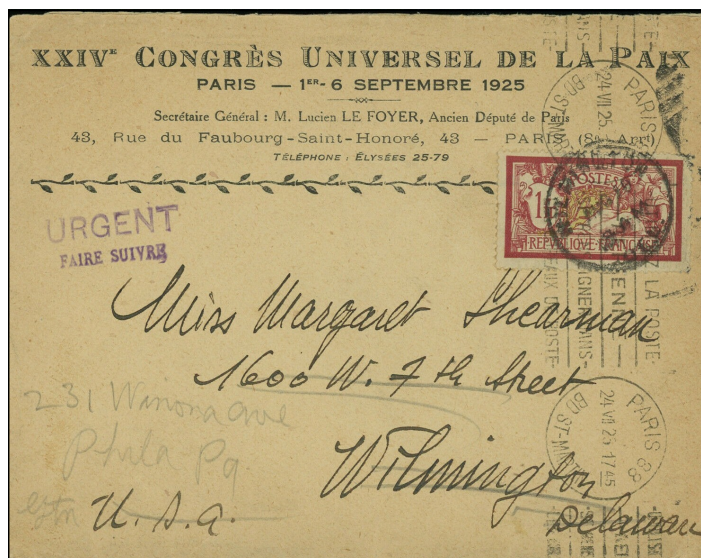 XXIVE CONGRÈS UNIVERSEL DE LA PAIX
PARIS — 1ER-6 SEPTEMBRE 1925
Secrétaire Général : M. Lucien LE FOYER, Ancien Député de Paris
43, Rue du Faubourg-Saint-Honoré, 43 — PARIS (8e Arrt)
TÉLÉPHONE : ÉLYSÉES 25-79
PARIS
24 VII 25
BD ST-M
POSTES
1F
REPUBLIQUE FRANÇAISE
URGENT
FAIRE SUIVRE
LA POSTE
Miss Margaret Shearman
1600 W. 7th Street
Wilmington
Delaware
U.S.a.
231 Winona ave
Phila Pa
PARIS 88
24 VII 25 1745
BD ST-M